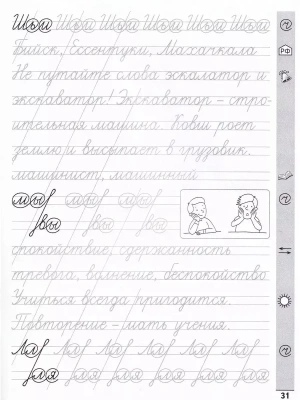 Бийск, Ессентуки, Махачкала
Не путайте слова эскалатор и
экскаватор! Экскаватор – стро-
ительная машина. Ковш роет
землю и высыпает в грузовик.
машинист, машинный
мы
вы вы вы
спокойствие, сдержанность
тревога, волнение, беспокойство
Учиться всегда пригодится.
Повторение – мать учения.
РФ
31